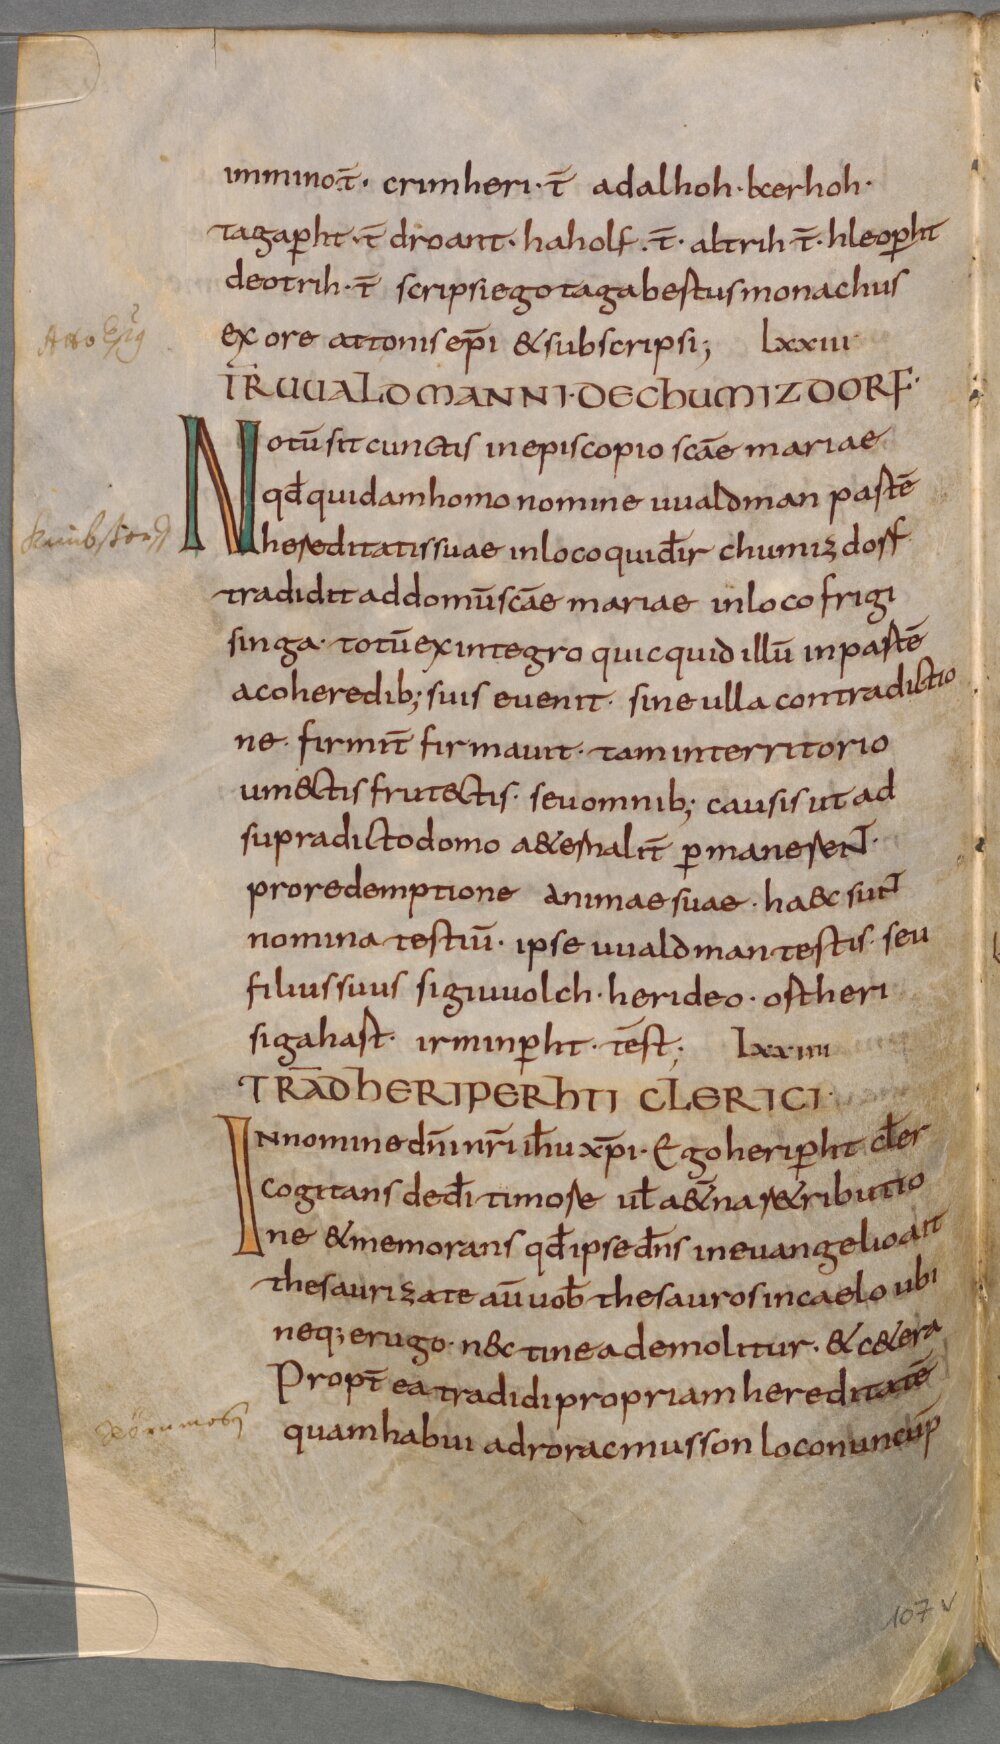 imminot̄· crimheri·t̄ adalhoh·kerhoh·
tagap̄ht·t̄ droant·haholf·t̄·altrih t̄·hleop̄ht
deotrih·t̄ scripsi ego tagabestus monachus
ex ore attonis ep̄i & subscripsi; lxxiii
TR̄ UUALDMANNI·DE CHUMIZDORF·
Notū sit cunctis in episcopio scāe mariae
qđ quidam homo nomine uualdman partē
hereditatis suae in loco qui dr̄ chumizdorf
tradidit ad domū scāe mariae in loco frigi
singa· totū ex integro quicquid illū in partē
a coheredib; suis euenit· sine ulla contradictio
ne· firmit̄ firmauit· tam in territorio
um&ctis frut&ctis· seu omnib; causis ut ad
supradicto domo a&ernalit̄ p̄manerent·
pro redemptione animae suae·ha&c sunt
nomina testiū· ipse uualdman testis· seu
filius suus sigiuuolch·herideo·ostheri
sigahast· irminp̄ht·tēst; lxxiiii
TRĀD HERIPERHTI CLERICI·
In nomine dn̄i nr̄i ih̄u xp̄i·Ego herip̄ht cl̄er
cogitans de dī timore ul̄ a&̄na r&ributio
ne & memorans qđ ipse dn̄s in euangelio ait
thesaurizate aū uob̄ thesauros in caelo ubi
neq; erugo·n&c tinea demolitur·& c&era
Propt̄ ea tradidi propriam hereditatē
quam habui ad roracmusson loco nuncup̄
107 v